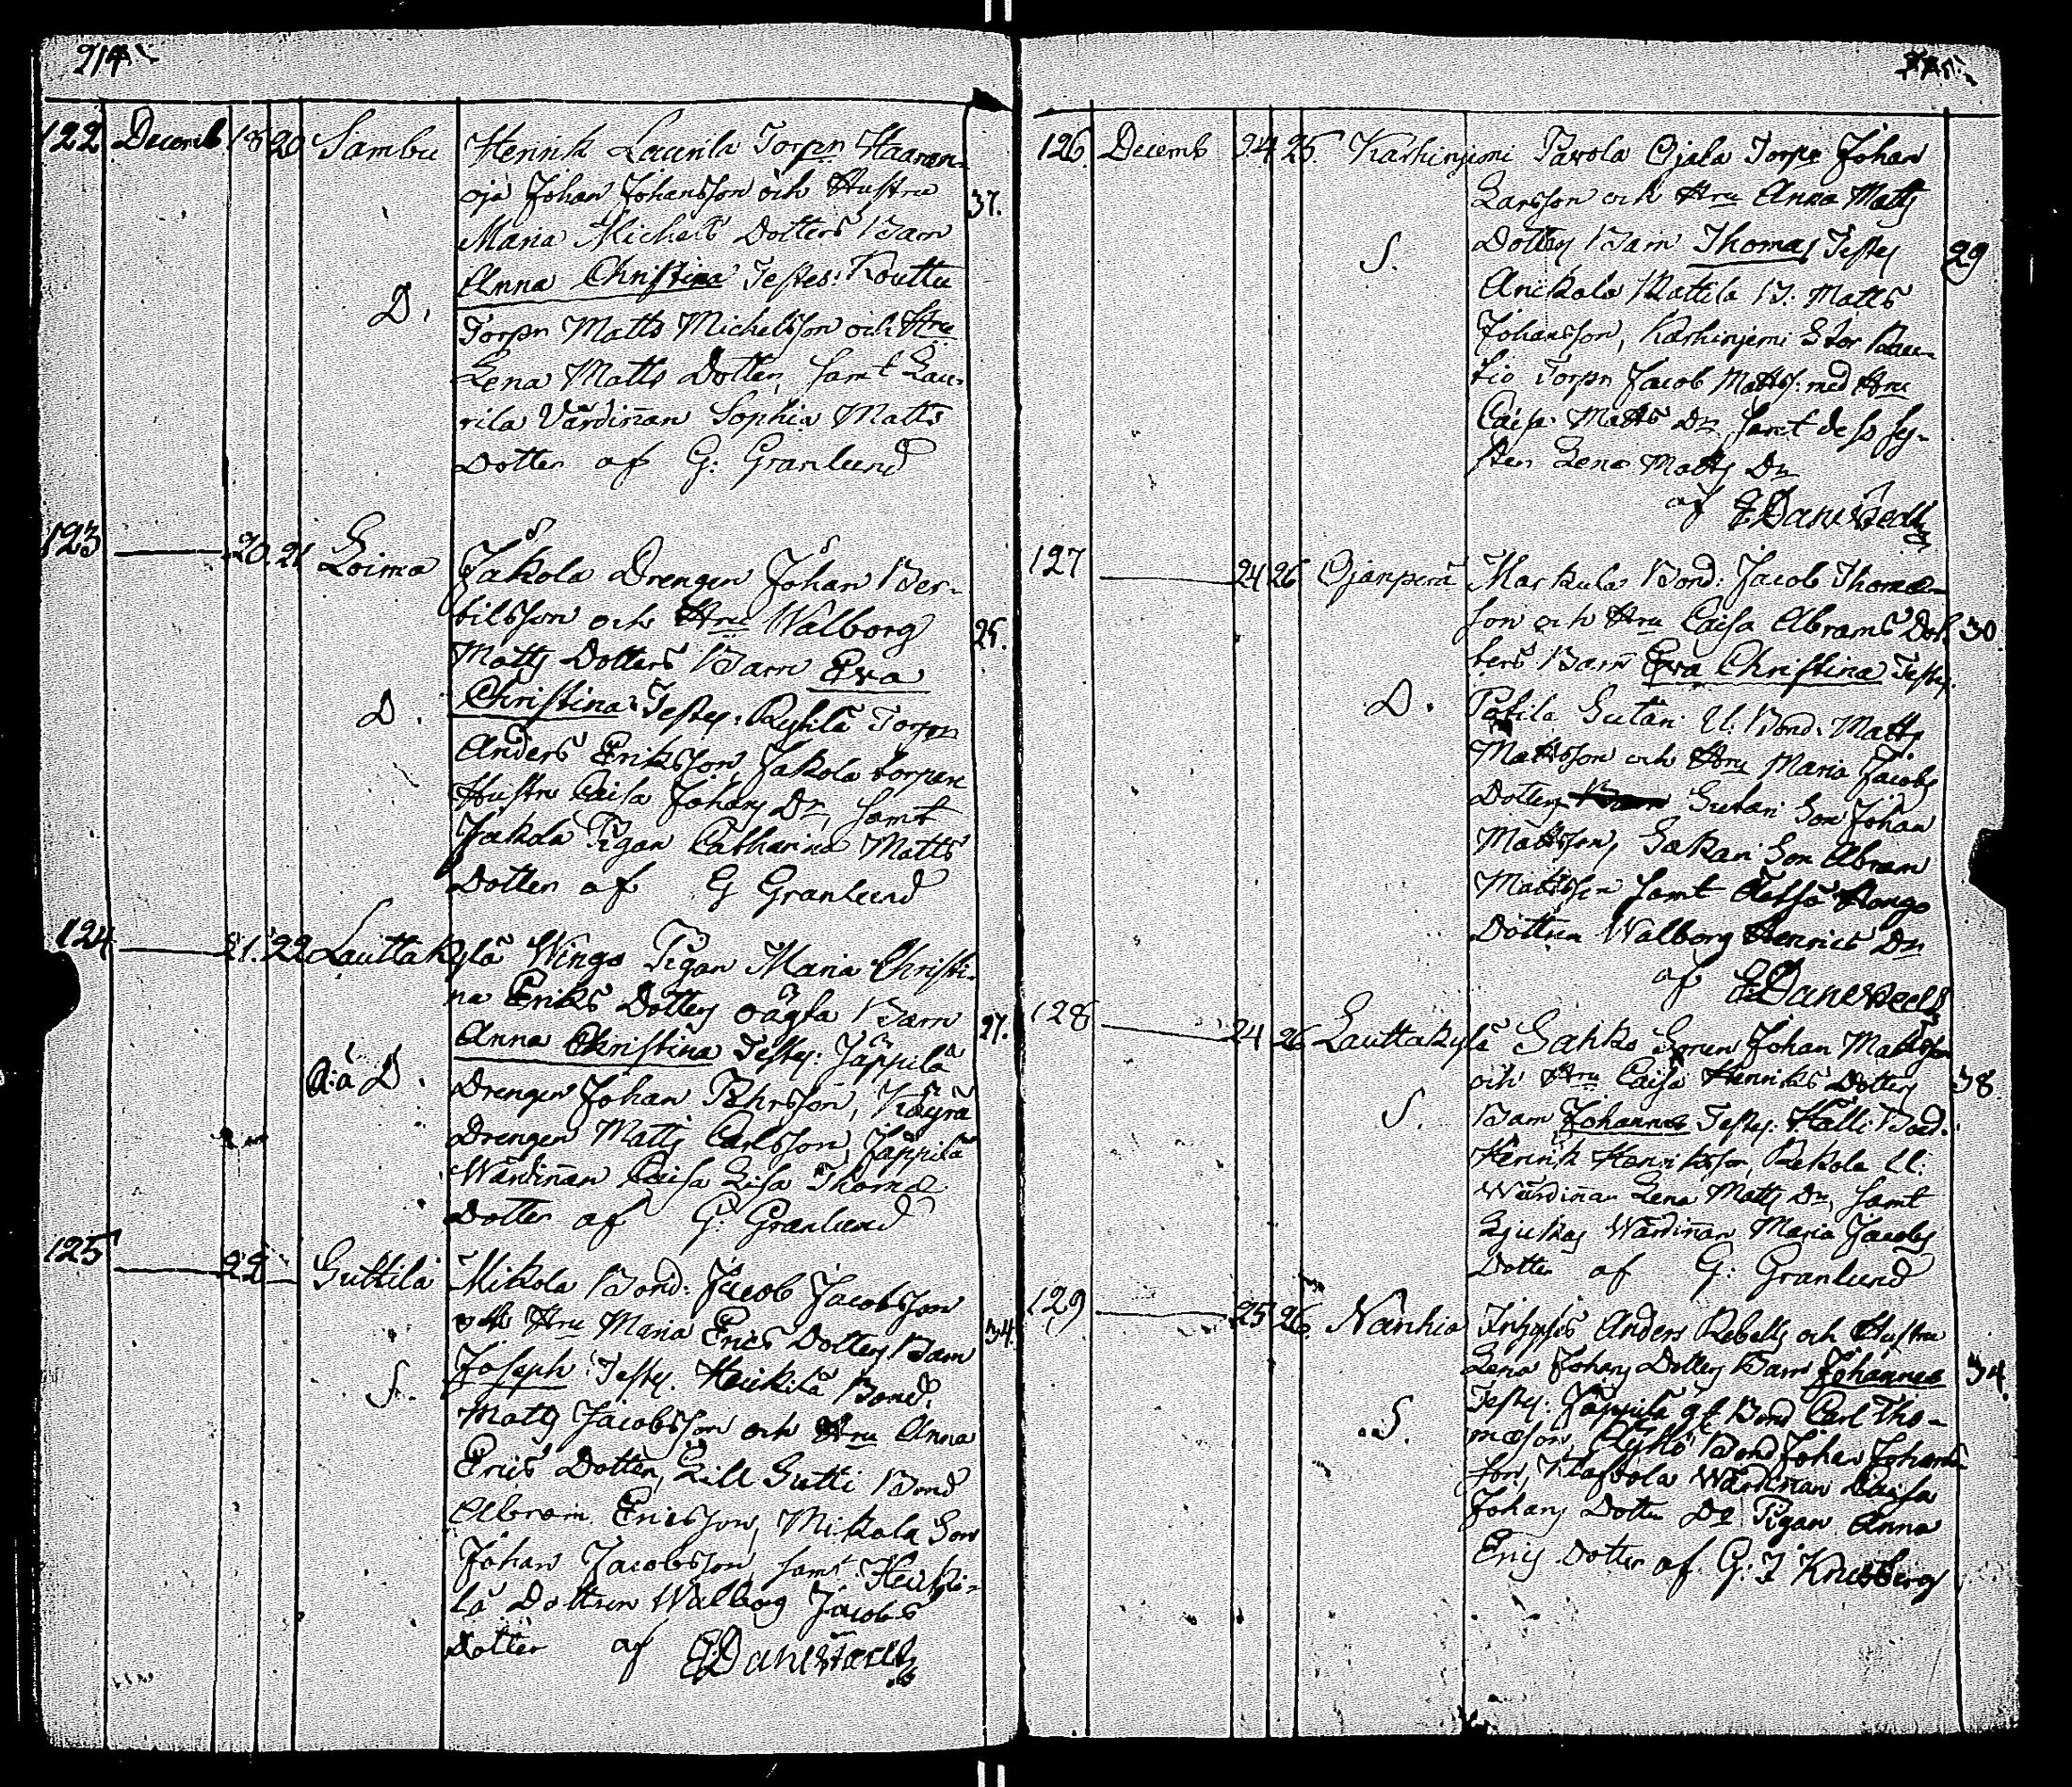 214
122 Decemb 18 20 Sambu Henrik Laurila Torpn Haaran-
oja Johan Johansson och Hustru 37.
Maria Michels Dotters Barn
Anna Christina Testes: Kouttu
D.
Torpn Matts Michelsson och Hru
Lena Matts Dotter, samt Lau-
rila Värdinnan Sophia Matts
Dotter af G: Granlund
123 20. 21 Loima Jakola Drengen Johan Ber-
tilsson och Hru Walborg 25.
Matts Dotters Barn Eva
D. Christina Testes: Torpn
Anders Eriksson, Jakola torpare
Hustru Caisa Johans Dr, samt
Jakola Pigan Catharina Matts
Dotter af G Granlund
124 21. 22 Lauttakylä Wingo Pigan Maria Christi-
na Eriks Dotters oägta Barn
Anna Christina Testes: Jäppilä 27.
O:ä D. Drengen Johan Pehrsson, Käyrä
Drengen Matts Carlsson, Jäppilä
Wärdinnan Caisa Lisa Thomæ
Dotter af G: Granlund
125 22 Suttila Mikola Bond: Jacob Jacobsson
och Hru Maria Erics Dotters Barn 34.
Joseph Testes. Heikilä Bond.
S. Matts Jacobsson och Hru Anna
Erics Dotter, Lill Sutti Bond
Abram Ericsson, Mikola Son
Johan Jacobsson, samt Heiki-
lä Dottren Walborg Jacobs
Dotter af
126. Decemb 24 25. Karhinjemi Pavola Ojala Torpr Johan
Larsson och Hru Anna Matts
S. Dotters Barn Thomas Testes 29
Anikala Mattila B. Matts
Johansson, Karhinjemi Stor Rau-
tio Torpn Jacob Mattss: med Hru
Caisa Matts Dr samt dess sys-
ter Lena Matts Dr
af
127 24 26 Ojanperä Markula Bond: Jacob Thomæ-
son och Hru Caisa Abrams Dot- 30
ters Barn Eva Christina Testes.
D. Sutari U. Bond. Matts
Mattsson och Hru Maria Jacobs
Dotter Sutari Son Johan
Mattsson, Sakari Son Abram
Mattsson samt
Dottren Walborg Henrics Dr
af
128 24 26 Lauttakylä Sahko Soren Johan Mattsson
och Hru Caisa Henriks Dotters 38
S. Barn Johannes Testes: Halli Bond.
Henrik Henriksson, Rekola U.
Wärdinnan Lena Matts Dr, samt
Ljukas Wärdinnan Maria Jacobs
Dotter af G: Granlund
129 25 26 Nanhia Inhyses Anders Rebell och Hustru
Lena Johans Dotters Barn Johannes 34.
S. Testes: Jäppilä gl Bond Carl Tho-
mæson, Bond Johan Johans
son, Wärdinnan Caisa
Johans Dotter Do Pigan Anna
Erics Dotter af G: J Knutberg